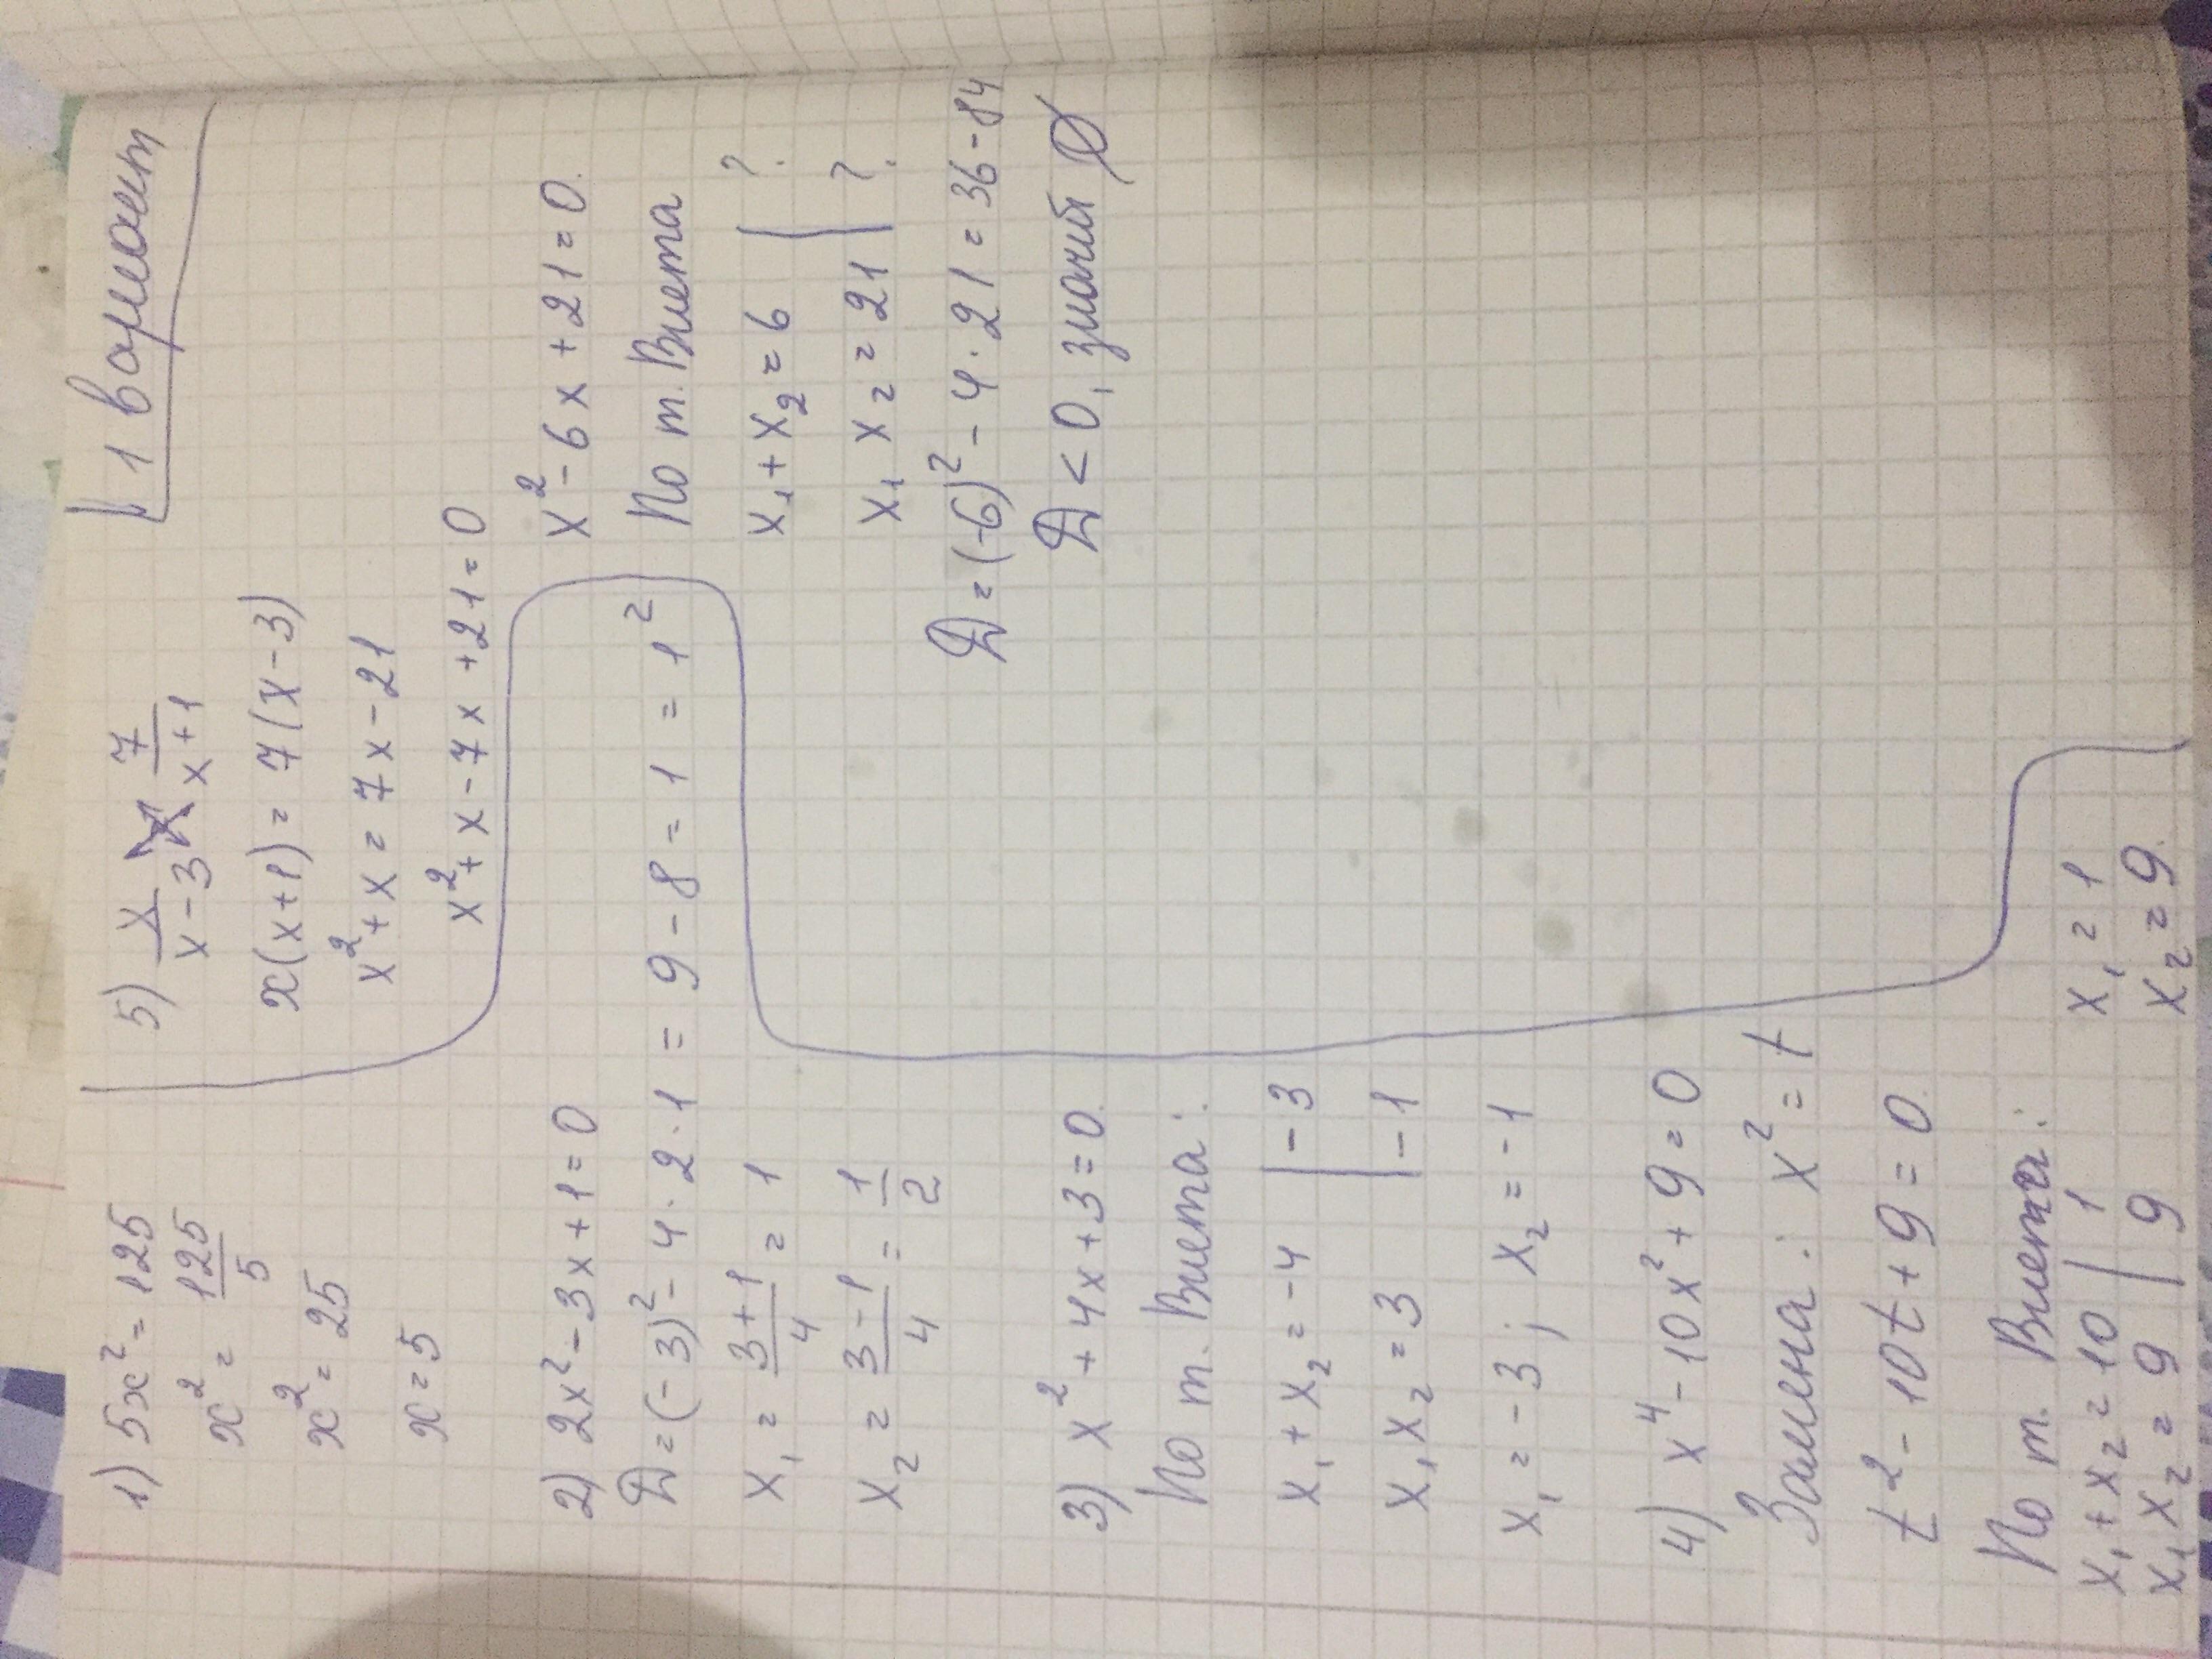 1 вариант
1) 5x² = 125
x² = 125/5
x² = 25
x = 5
2) 2x² - 3x + 1 = 0
Д = (-3)² - 4 · 2 · 1 = 9 - 8 = 1 = 1²
x₁ = (3+1)/4 = 1
x₂ = (3-1)/4 = 1/2
3) x² + 4x + 3 = 0.
По т. Виета:
x₁ + x₂ = -4 | -3
x₁x₂ = 3 | -1
x₁ = -3; x₂ = -1
4) x⁴ - 10x² + 9 = 0
Замена: x² = t
t² - 10t + 9 = 0.
По т. Виета:
x₁ + x₂ = 10 | 1
x₁x₂ = 9 | 9
x₁ = 1
x₂ = 9.
5) x/(x-3) 7/(x+1)
x(x+1) = 7(x-3)
x² + x = 7x - 21
x² + x - 7x + 21 = 0
x² - 6x + 21 = 0.
По т. Виета
x₁ + x₂ = 6 | ?
x₁x₂ = 21 | ?
Д = (-6)² - 4 · 21 = 36 - 84
Д < 0, значит ∅